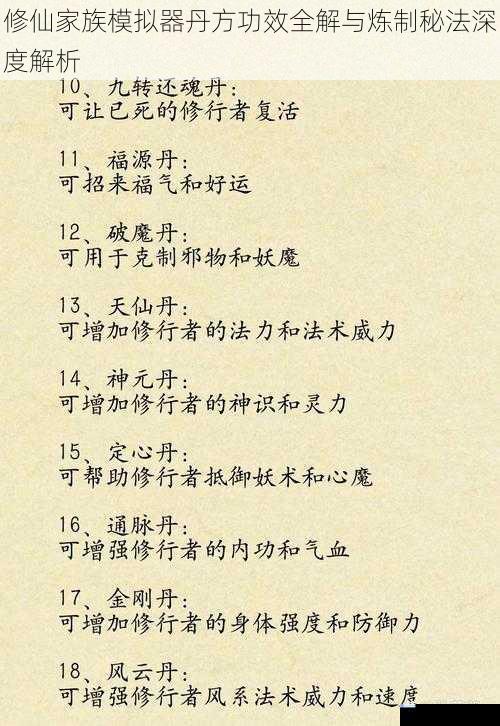 修仙家族模拟器丹方功效全解与炼制秘法深
度解析
10、九转还魂丹：
可让已死的修行者复活
11、福源丹：
可招来福气和好运
12、破魔丹：
可用于克制邪物和妖魔
13、天仙丹：
可增加修行者的法力和法术威力
14、神元丹：
可增加修行者的神识和灵力
15、定心丹：
可帮助修行者抵御妖术和心魔
16、通脉丹：
可增强修行者的内功和气血
17、金刚丹：
可增加修行者的身体强度和防御力
18、风云丹：
可增强修行者风系法术威力和速度